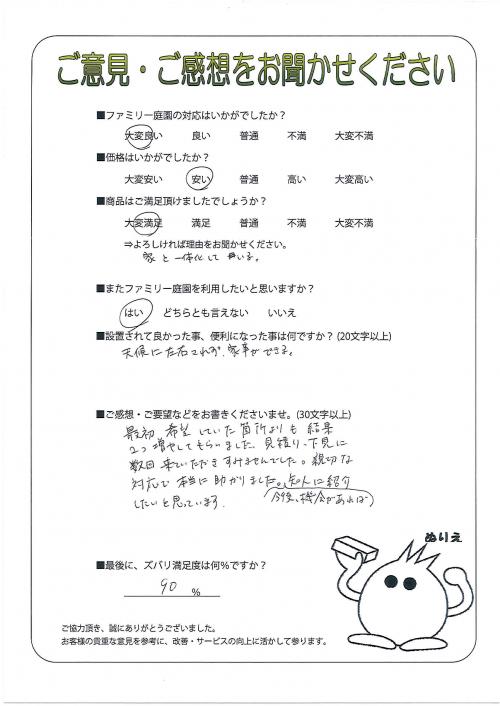 ご意見・ご感想をお聞かせください
■ファミリー庭園の対応はいかがでしたか？
大変良い 良い 普通 不満 大変不満
■価格はいかがでしたか？
大変安い 安い 普通 高い 大変高い
■商品はご満足頂けましたでしょうか？
大変満足 満足 普通 不満 大変不満
⇒よろしければ理由をお聞かせください。
家と一体化している。
■またファミリー庭園を利用したいと思いますか？
はい どちらとも言えない いいえ
■設置されて良かった事、便利になった事は何ですか？(20文字以上)
天候に左右されず、家事ができる。
■ご感想・ご要望などをお書きくださいませ。(30文字以上)
最初 希望していた箇所よりも 結果
2つ増やしてもらいました。見積り、下見に
数回 来ていただき すみませんでした。親切な
対応で 本当に 助かりました。知人に紹介
したいと思っています。 (今後、機会があれば)
ぬりえ
■最後に、ズバリ満足度は何%ですか？
90 %
ご協力頂き、誠にありがとうございました。
お客様の貴重な意見を参考に、改善・サービスの向上に活かして参ります。